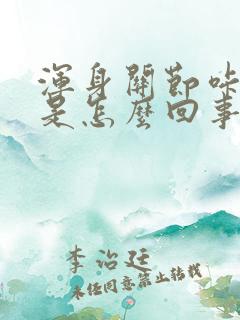 渾身關節咔
是怎麼回事
李治廷
未經同意禁止轉載